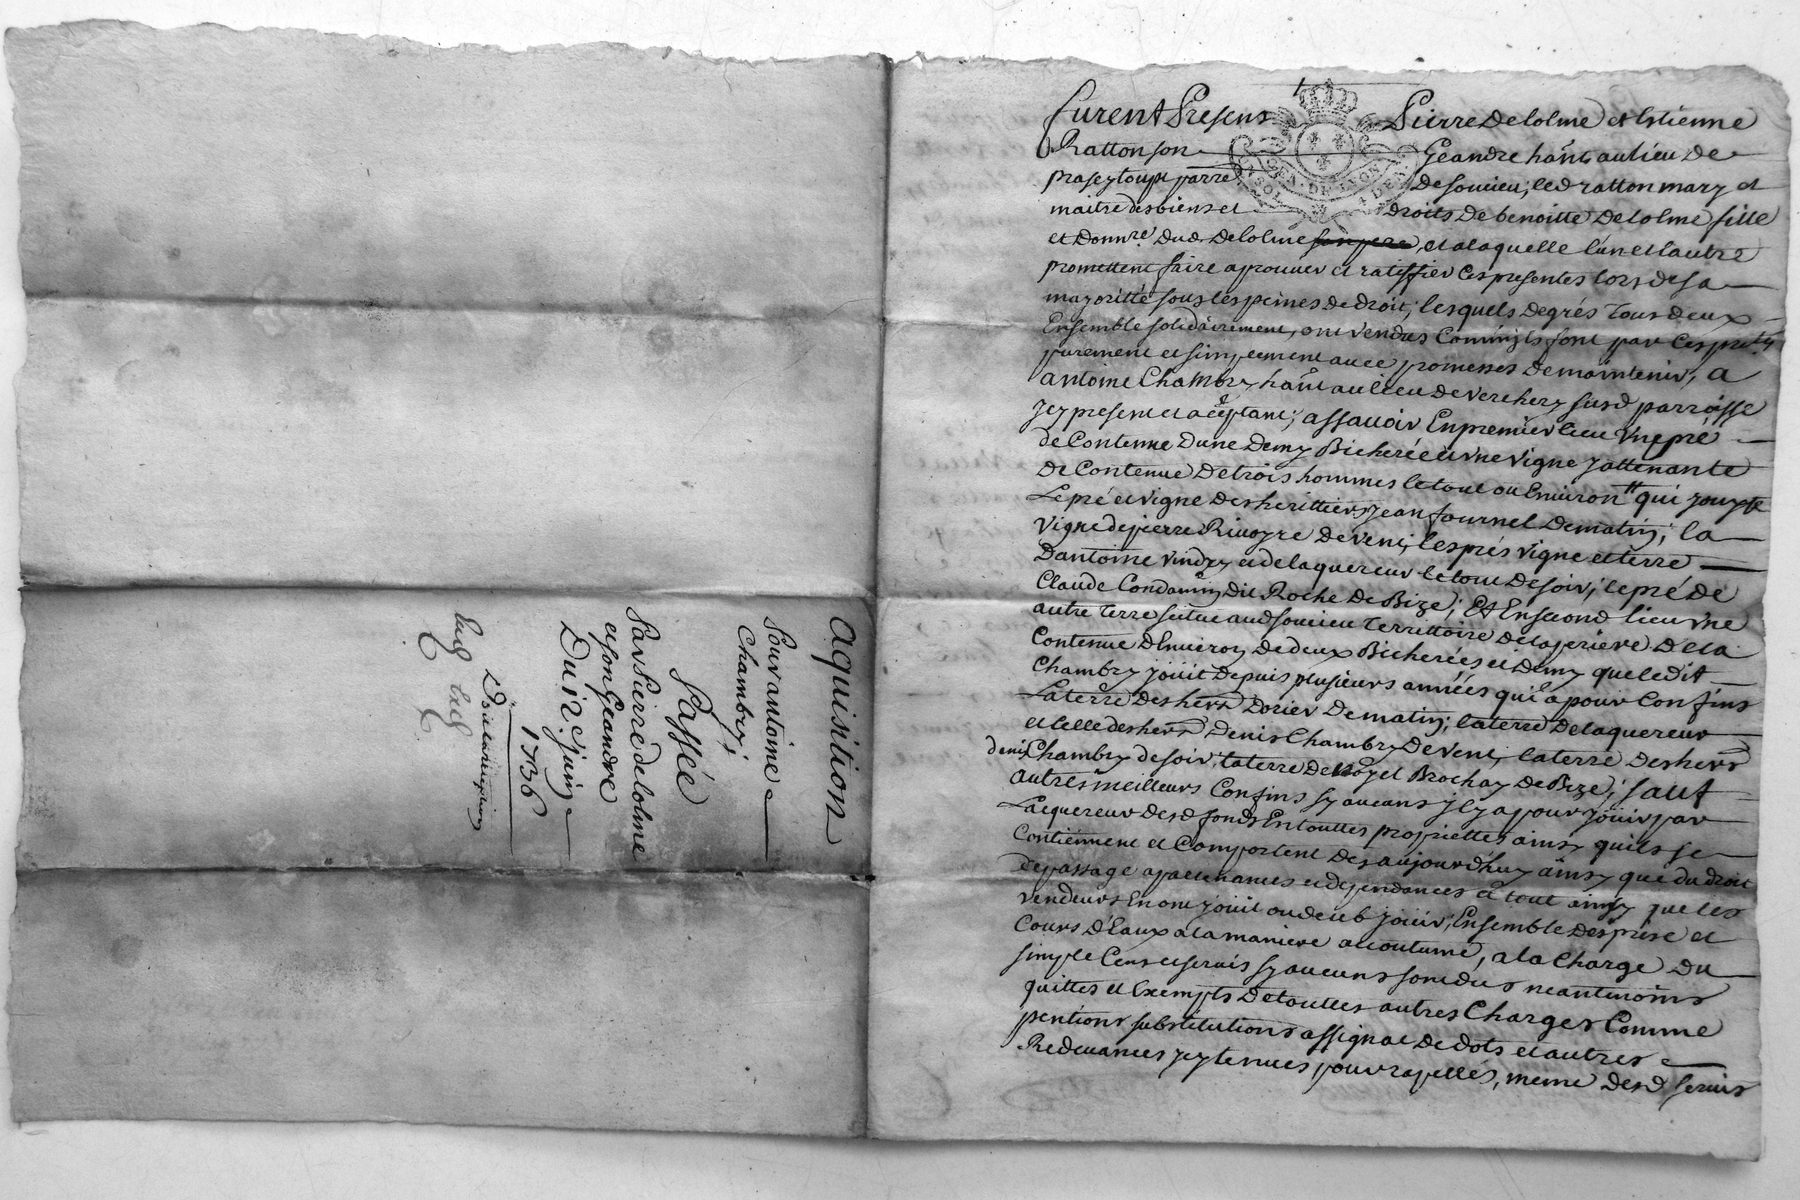 aquisition
Pour antoine
Chambry;
Passée
Par Pierre delolme
et son Geandre
Du 12e juin
1736
furent Presens Pierre Delolme et Estienne
Ratton son Geandre hañt au lieu de
praseytoupe parre de soucieu; led ratton mary et
maitre des biens et droits de benoitte Delolme fille
et donnre dud Delolme son pere, et a laquelle lun et lautre
promettent faire aprouver et ratiffier Ces presentes lors de sa
mayoritté sous les peines de droit; lesquels de grés tous deux
Ensemble solidairement, ont vendus Comm'ils font par Ces pntes
purement et simplement avec promesses de maintenir, a
antoine Chambry hañt au lieu de verchery susd parroisse
jcy present et aceptant; assavoir En premier lieu Un pré
de Contenue dune demy Bicherée et vne vigne y attenante
de Contenue de trois hommes le tout ou Environ qui jouxte
Le pré et vigne des herittiers jean fournel de matin; la
vigne de pierre Rivoyre de vent; les prés vigne et terre
Dantoine vindry et de laquereur le tout de soir; le pré de
Claude Condamin dit Roche de Bize; Et En second lieu vne
autre terre scitue aud soucieu territtoire de la periere de la
Contenue d'Environ de deux Bicherées et demy que ledit
Chambry jouit depuis plusieurs années qui a pour Confins
La terre des hers Dorier de matin; la terre de laquereur
et celle des hers denis Chambry de vent; la terre des hers
denis Chambry de soir; la terre de Noyel Brochay de Bize; sauf
autres meilleurs Confins sy aucuns jl y a pour jouir par
Lacquereur desd fonds En touttes proprietté ainsy quils se
Contiennent et Comportent des aujourdhuy ainsy que du droit
de passage apartenances et dependances et tout ainsy que les
vendeurs En ont jouit ou deub jouir; Ensemble des prise et
Cours d'Eaux a la maniere accoutumé, a la Charge du
simple Cens et servis sy aucuns sont dus neantmoins
quittes et Exempts de touttes autres Charges Comme
pentions substitutions assignat de dots et autres
Redevances jcy tenues pour rapellés, meme desd servis